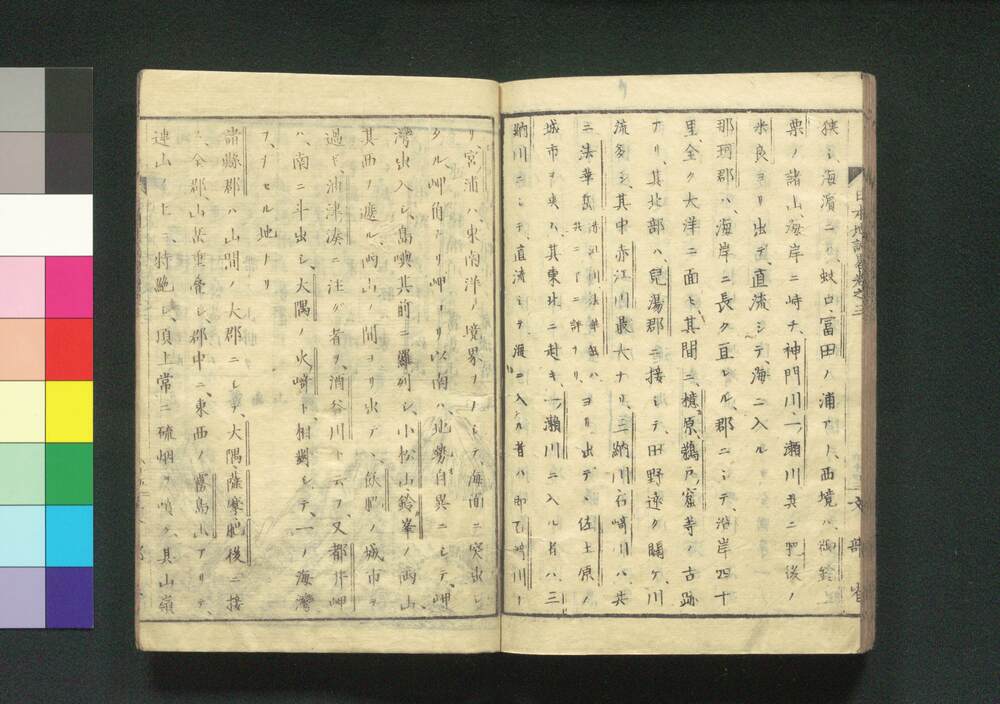 狭シ、海濱ニハ、蚊口、冨田ノ浦アリ、西境ハ、尾鈴
栗ノ諸山、海岸ニ峙チ、神門川、一瀬川、共ニ肥後ノ
米良ヨリ出テ、直流シテ、海ニ入ル
那珂郡ハ、海岸ニ長ク亘レル、郡ニシテ、沿岸四十
里、全ク大洋ニ面ス、其間ニ、檍原、鵜戸、窟等ノ古跡
アリ、其北部ハ、兒湯郡ニ接シテ、田野遠ク開ケ、川
流多シ、其中赤江川最大ナリ、三納川、石崎川ハ、共
三法華岳ヨリ出テ、佐土原ノ
城市ヲ夾ム、其東北ニ赴キ、一瀬川ニ入ル者ハ、三
納川ニシテ、直流シテ、海ニ入ル者ハ、即石崎川ナ
リ、宮浦ハ、東南洋ノ境界ニシテ、海面ニ突出シ
タル、岬角ナリ、岬ヨリ以南ハ、地勢自異ニシテ、岬
灣出入シ、島嶼其前ニ羅列シ、小松山、鈴峯ノ両山
其西ノ遮ル、両山ノ間ヨリ出テ、飫肥ノ城市ヲ
過ギ、油津湊ニ注グ者ヲ、酒谷川ト云フ、又都井岬
ハ、南ニ斗出シ、大隅ノ火崎ト相對シテ、一ノ海灣
ヲ、ナセル地ナリ
諸縣郡ハ、山間ノ大郡ニシテ、大隅、薩摩、肥後ニ接
ス、全郡山岳重疊シ、郡中ニ、東西ノ霧島山アリテ、
連山ノ上ニ、特絶シ、頂上常ニ硫烟ヲ噴ク、其山嶺
日本地誌畧巻之三
文部省